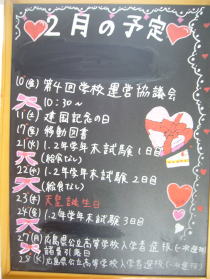 2月の予定
10(金) 第4回学校運営協議会
10:30~
11(土) 建国記念の日
17(金) 移動図書
21(火) 1、2年学年末試験1日目
(給食なし)
22(水) 1、2年学年末試験2日目
(給食なし)
23(木) 天皇誕生日
24(金) 1、2年学年末試験3日目
27(月) 広島県公立高等学校入学者選抜(一次選抜)
諸費引落日
28(火) 広島県公立高等学校入学者選抜(一次選抜)